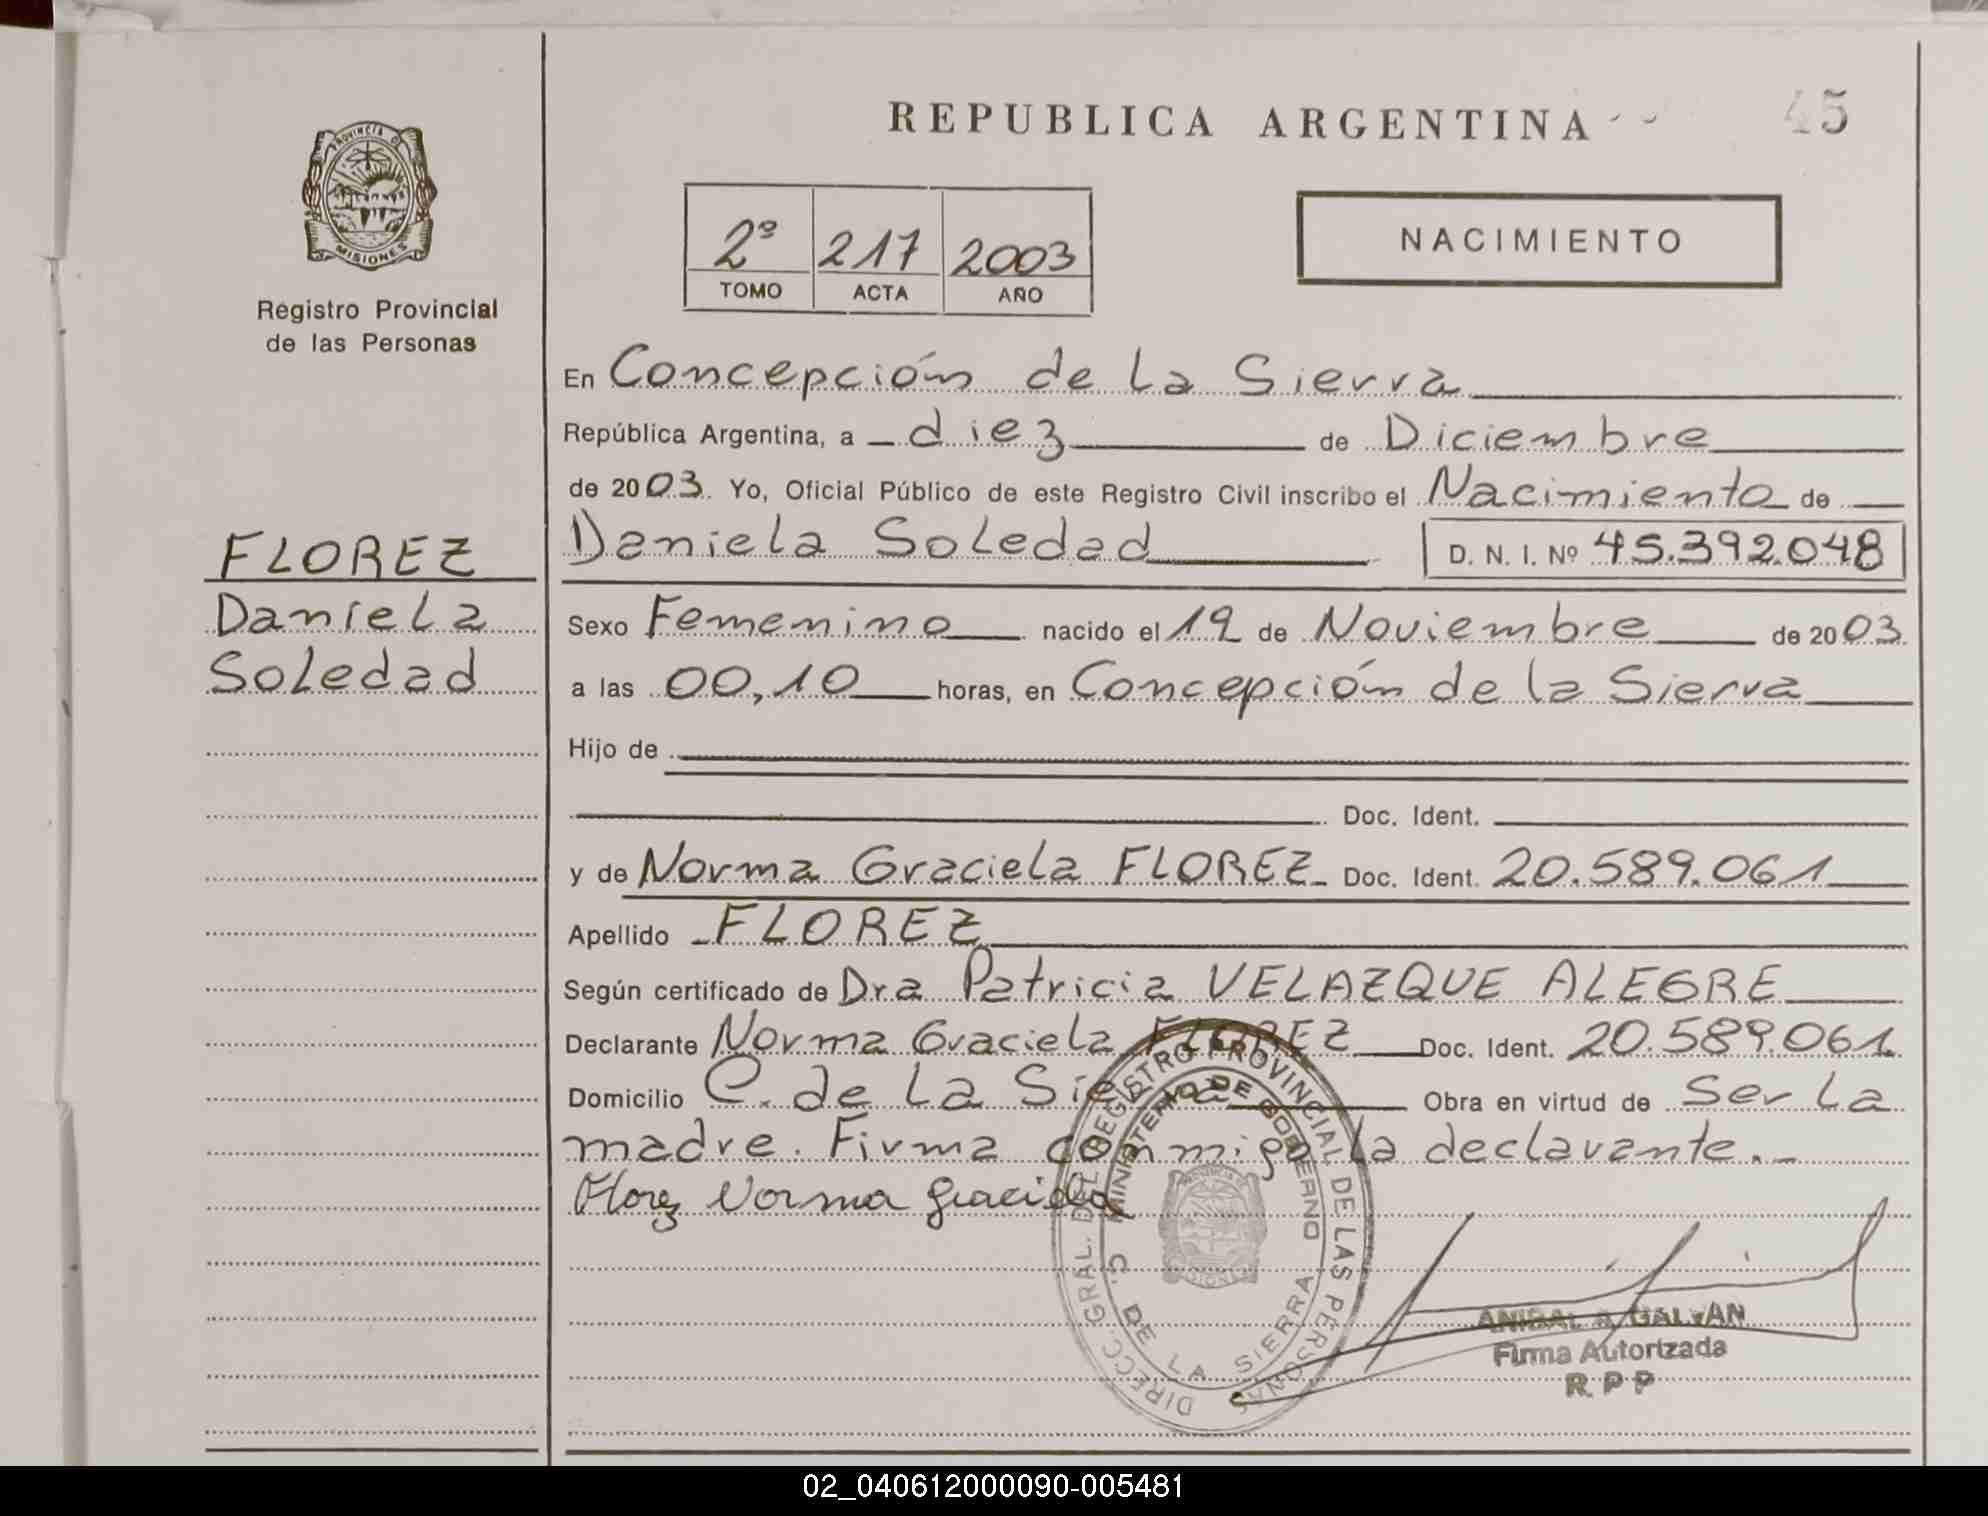 REPUBLICA ARGENTINA
45
PROVINCIA DE
MISIONES
Registro Provincial
de las Personas
2º 217 2003
TOMO ACTA AÑO
NACIMIENTO
En Concepción de La Sierra
República Argentina, a diez de Diciembre
de 2003. Yo, Oficial Público de este Registro Civil inscribo el Nacimiento de
Daniela Soledad D. N. I. Nº 45.392.048
FLOREZ
Daniela
Soledad
Sexo Femenino nacido el 19 de Noviembre de 2003
a las 00,10 horas, en Concepción de la Sierra
Hijo de
Doc. Ident.
y de Norma Graciela FLOREZ Doc. Ident. 20.589.061
Apellido FLOREZ
Según certificado de Dra Patricia VELAZQUE ALEGRE
Declarante Norma Graciela FLOREZ Doc. Ident. 20.589.061
Domicilio C. de La Sierra Obra en virtud de Ser La
madre. Firma conmigo la declarante.
Florez Norma Graciela
DIRECC. GRAL. DEL REGISTRO PROVINCIAL DE LAS PERSONAS
MINISTERIO DE GOBIERNO
C. DE LA SIERRA
ANIBAL A. GALVAN
Firma Autorizada
R. P P
02_040612000090-005481